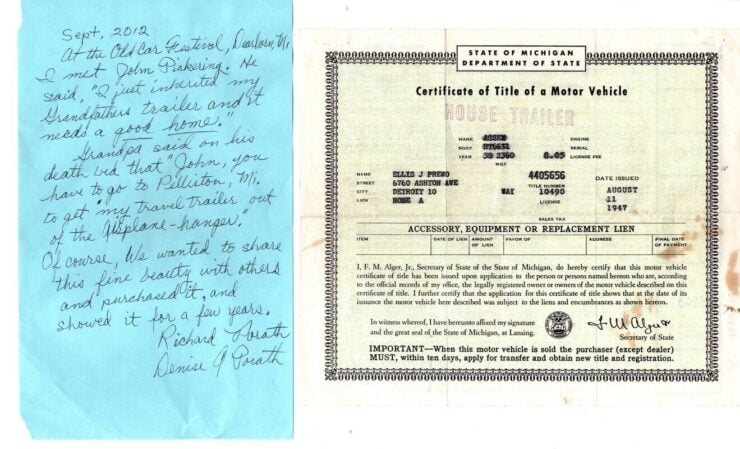 Sept, 2012
At the Old Car Festival, Dearborn, Mi
I met John Pickering. He
said, "I just inherited my
Grandfathers trailer and it
needs a good home."
Grandpa said on his
death bed that "John, you
have to go to Pellston, Mi.
to get my travel trailer out
of the airplane-hanger."
Of course, We wanted to share
this fine beauty with others
and purchased it, and
showed it for a few years.
Richard Porath
Denise A Porath
STATE OF MICHIGAN
DEPARTMENT OF STATE
Certificate of Title of a Motor Vehicle
HOUSE TRAILER
MAKE ENGINE
BODY SERIAL
YEAR 38 2360 8.05 LICENSE FEE
WGT
NAME ELLIS J PREMO 4405656 DATE ISSUED
STREET 6760 ASHTON AVE TITLE NUMBER AUGUST
CITY DETROIT 10 WAY 10490 11
LIEN NONE A LICENSE 1947
SALES TAX
ACCESSORY, EQUIPMENT OR REPLACEMENT LIEN
ITEM DATE OF LIEN AMOUNT OF LIEN FAVOR OF ADDRESS FINAL DATE OF PAYMENT
I, F. M. Alger, Jr., Secretary of State of the State of Michigan, do hereby certify that this motor vehicle
certificate of title has been issued upon application to the person or persons named hereon who are, according to
the official records of my office, the legally registered owner or owners of the motor vehicle described on this
certificate of title. I further certify that the application for this certificate of title shows that at the date of its
issuance the motor vehicle here described was subject to the liens and encumbrances as shown hereon.
In witness whereof, I have hereunto affixed my signature
and the great seal of the State of Michigan, at Lansing.
F M Alger Jr
Secretary of State
IMPORTANT—When this motor vehicle is sold the purchaser (except dealer)
MUST, within ten days, apply for transfer and obtain new title and registration.